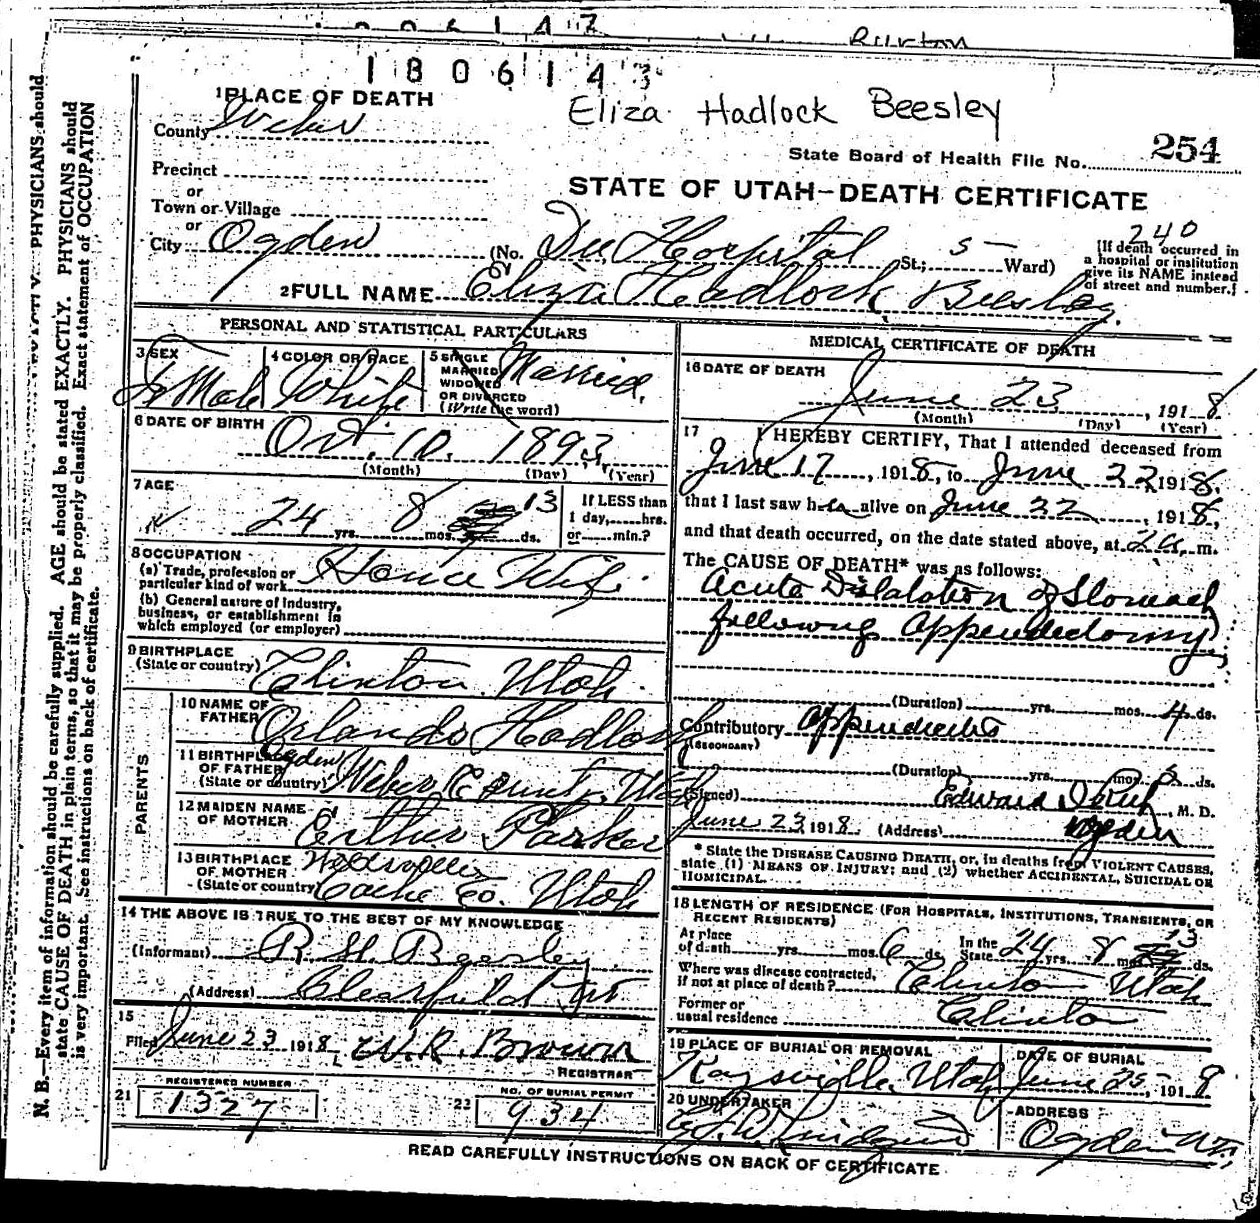 Burton
1806143
Eliza Hadlock Beesley
1 PLACE OF DEATH
County Weber
State Board of Health File No. 254
Precinct
or
Town or Village
or
City Ogden
STATE OF UTAH—DEATH CERTIFICATE
240
(No. Dee Hospital St.; 5 Ward)
[If death occurred in
a hospital or institution
give its NAME instead
of street and number.]
2 FULL NAME Eliza Hadlock Beesley
PERSONAL AND STATISTICAL PARTICULARS
3 SEX
Female
4 COLOR OR RACE
White
5 SINGLE
MARRIED
WIDOWED
OR DIVORCED
(Write the word)
Married
6 DATE OF BIRTH
Oct. 10. 1893
(Month) (Day) (Year)
7 AGE
24 yrs. 8 mos. 13 ds.
If LESS than
1 day, hrs.
or min.?
8 OCCUPATION
(a) Trade, profession or
particular kind of work House Wife
(b) General nature of Industry,
business, or establishment in
which employed (or employer)
9 BIRTHPLACE
(State or country) Clinton Utah
PARENTS
10 NAME OF
FATHER Orlando Hadlock
11 BIRTHPLACE
OF FATHER Ogden
(State or country) Weber County, Utah
12 MAIDEN NAME
OF MOTHER Esther Parker
13 BIRTHPLACE
OF MOTHER Wellsville
(State or country) Cache Co. Utah
14 THE ABOVE IS TRUE TO THE BEST OF MY KNOWLEDGE
(Informant) R. H. Beesley
(Address) Clearfield Ut
15
Filed June 23 1918, W. R. Brown
REGISTRAR
21 REGISTERED NUMBER
1327
22 NO. OF BURIAL PERMIT
934
MEDICAL CERTIFICATE OF DEATH
16 DATE OF DEATH
June 23, 1918
(Month) (Day) (Year)
17 I HEREBY CERTIFY, That I attended deceased from
June 17, 1918, to June 22 1918,
that I last saw her alive on June 22, 1918,
and that death occurred, on the date stated above, at 2 a. m.
The CAUSE OF DEATH* was as follows:
Acute Dilatation of Stomach
following Appendectomy
(Duration) yrs. mos. 4 ds.
Contributory Appendicitis
(SECONDARY)
(Duration) yrs. mos. ds.
(Signed) Edward I Rich, M. D.
June 23 1918 (Address) Ogden
* State the DISEASE CAUSING DEATH, or, in deaths from VIOLENT CAUSES,
state (1) MEANS OF INJURY; and (2) whether ACCIDENTAL, SUICIDAL OR
HOMICIDAL.
18 LENGTH OF RESIDENCE (FOR HOSPITALS, INSTITUTIONS, TRANSIENTS, OR
RECENT RESIDENTS)
At place
of death yrs. mos. 6 ds. In the
State 24 yrs. 8 mos. 13 ds.
Where was disease contracted,
if not at place of death? Clinton Utah
Former or
usual residence Clinton
19 PLACE OF BURIAL OR REMOVAL
Kaysville, Utah
DATE OF BURIAL
June 25, 1918
20 UNDERTAKER
Lindquist
ADDRESS
Ogden Ut.
READ CAREFULLY INSTRUCTIONS ON BACK OF CERTIFICATE
N. B.—Every item of information should be carefully supplied. AGE should be stated EXACTLY. PHYSICIANS should
state CAUSE OF DEATH in plain terms, so that it may be properly classified. Exact statement of OCCUPATION
is very important. See instructions on back of certificate.